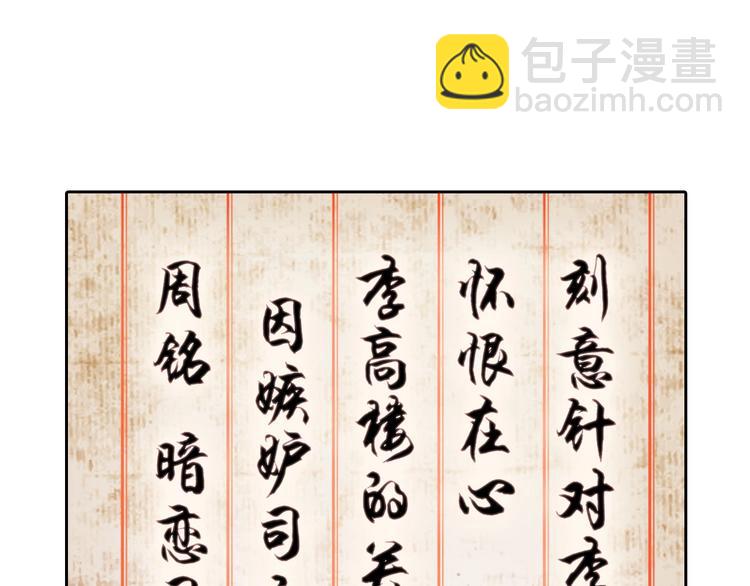 包子漫畫
baozimh.com
周铭 暗恋
因嫉妒司
李高楼的关
怀恨在心
刻意针对李